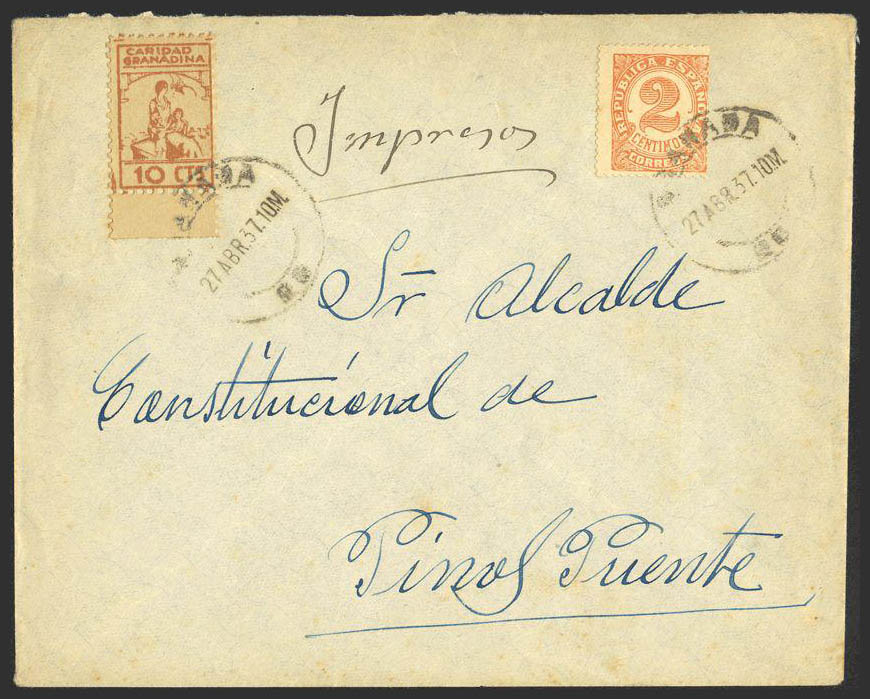 CARIDAD
GRANADINA
10 CTS
Impresos
REPÚBLICA ESPAÑOLA
2
CENTIMOS
CORREOS
GRANADA
27 ABR.37.10M.
GRANADA
27 ABR.37.10M.
Sr Alcalde
Constitucional de
Pinos Puente